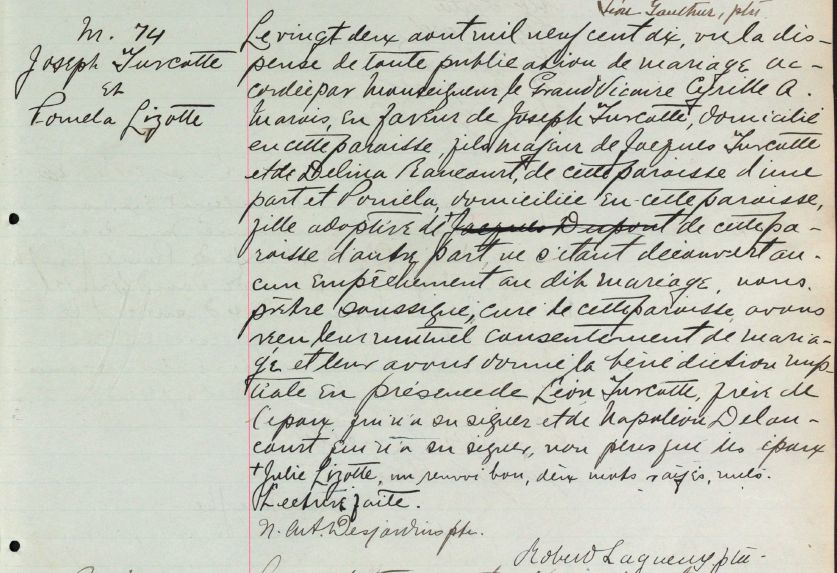 Léon Gauthier, ptre
M. 74
Joseph Turcotte
et
Pomela Lizotte
Le vingt deux aout mil neuf cent dix, vu la dis-
pense de toute publication de mariage ac-
cordée par Monseigneur le Grand Vicaire Cyrille A.
Marois, en faveur de Joseph Turcotte, domicilié
en cette paroisse, fils majeur de Jacques Turcotte
et de Delina Rancourt, de cette paroisse d'une
part et Pomela, domiciliée en cette paroisse,
fille adoptive de + Jacques Dupont de cette pa-
roisse d'autre part, ne s'étant découvert au-
cun empêchement au dit mariage, nous
prêtre soussigné, curé de cette paroisse, avons
reçu leur mutuel consentement de maria-
ge et leur avons donné la bénédiction nup-
tiale en présence de Léon Turcotte, frère de
l'époux qui n'a su signer et de Napoléon Delau-
court qui n'a su signer, non plus que les époux
+ Julie Lizotte, un renvoi bon, deux mots rayés, nuls.
Lecture faite.
N. Art. Desjardins ptr.
Robert Lagueux ptre